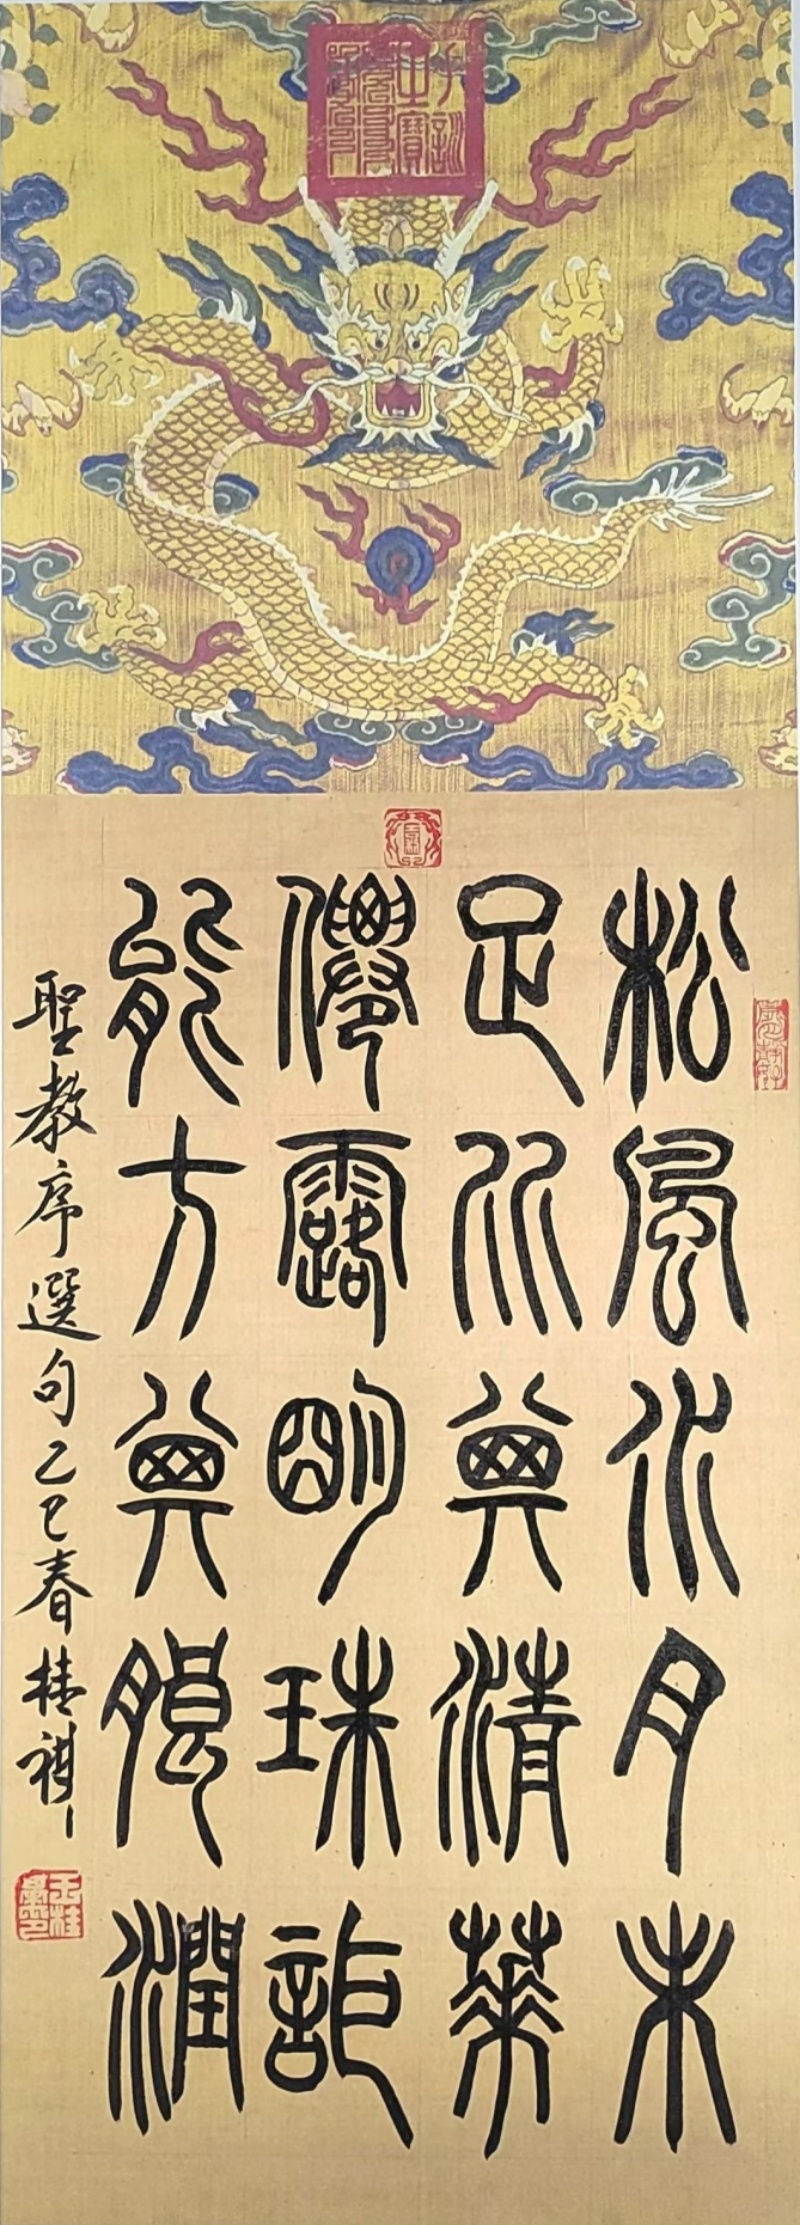 松風水月未
足比其清華
僊露明珠詎
能方其朗潤
聖教序選句乙巳春桂